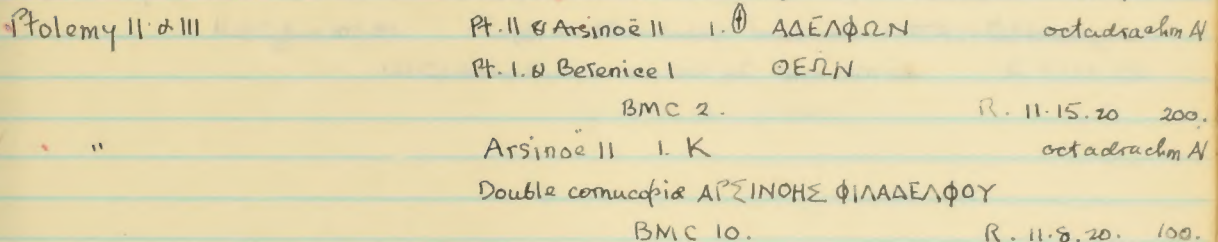 Ptolemy II & III Pt. II & Arsinoë II l. ΑΔΕΛΦΩΝ octadrachm AV
Pt. I. & Berenice I ΘΕΩΝ
BMC 2. R. 11.15.20 200.
" Arsinoë II l. K octadrachm AV
Double cornucopia ΑΡΣΙΝΟΗΣ ΦΙΛΑΔΕΛΦΟΥ
BMC 10. R. 11.8.20. 100.